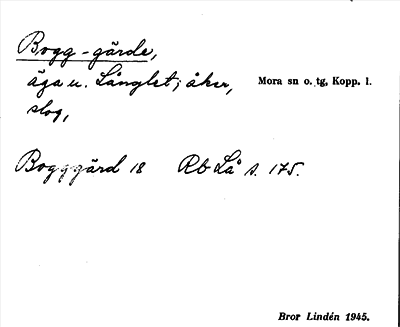 Bogg-gärde,
äga u. Långlet; åker, Mora sn o. tg, Kopp. l.
slog,
Bogggärd 18 Rb Lå s. 175.
Bror Lindén 1945.